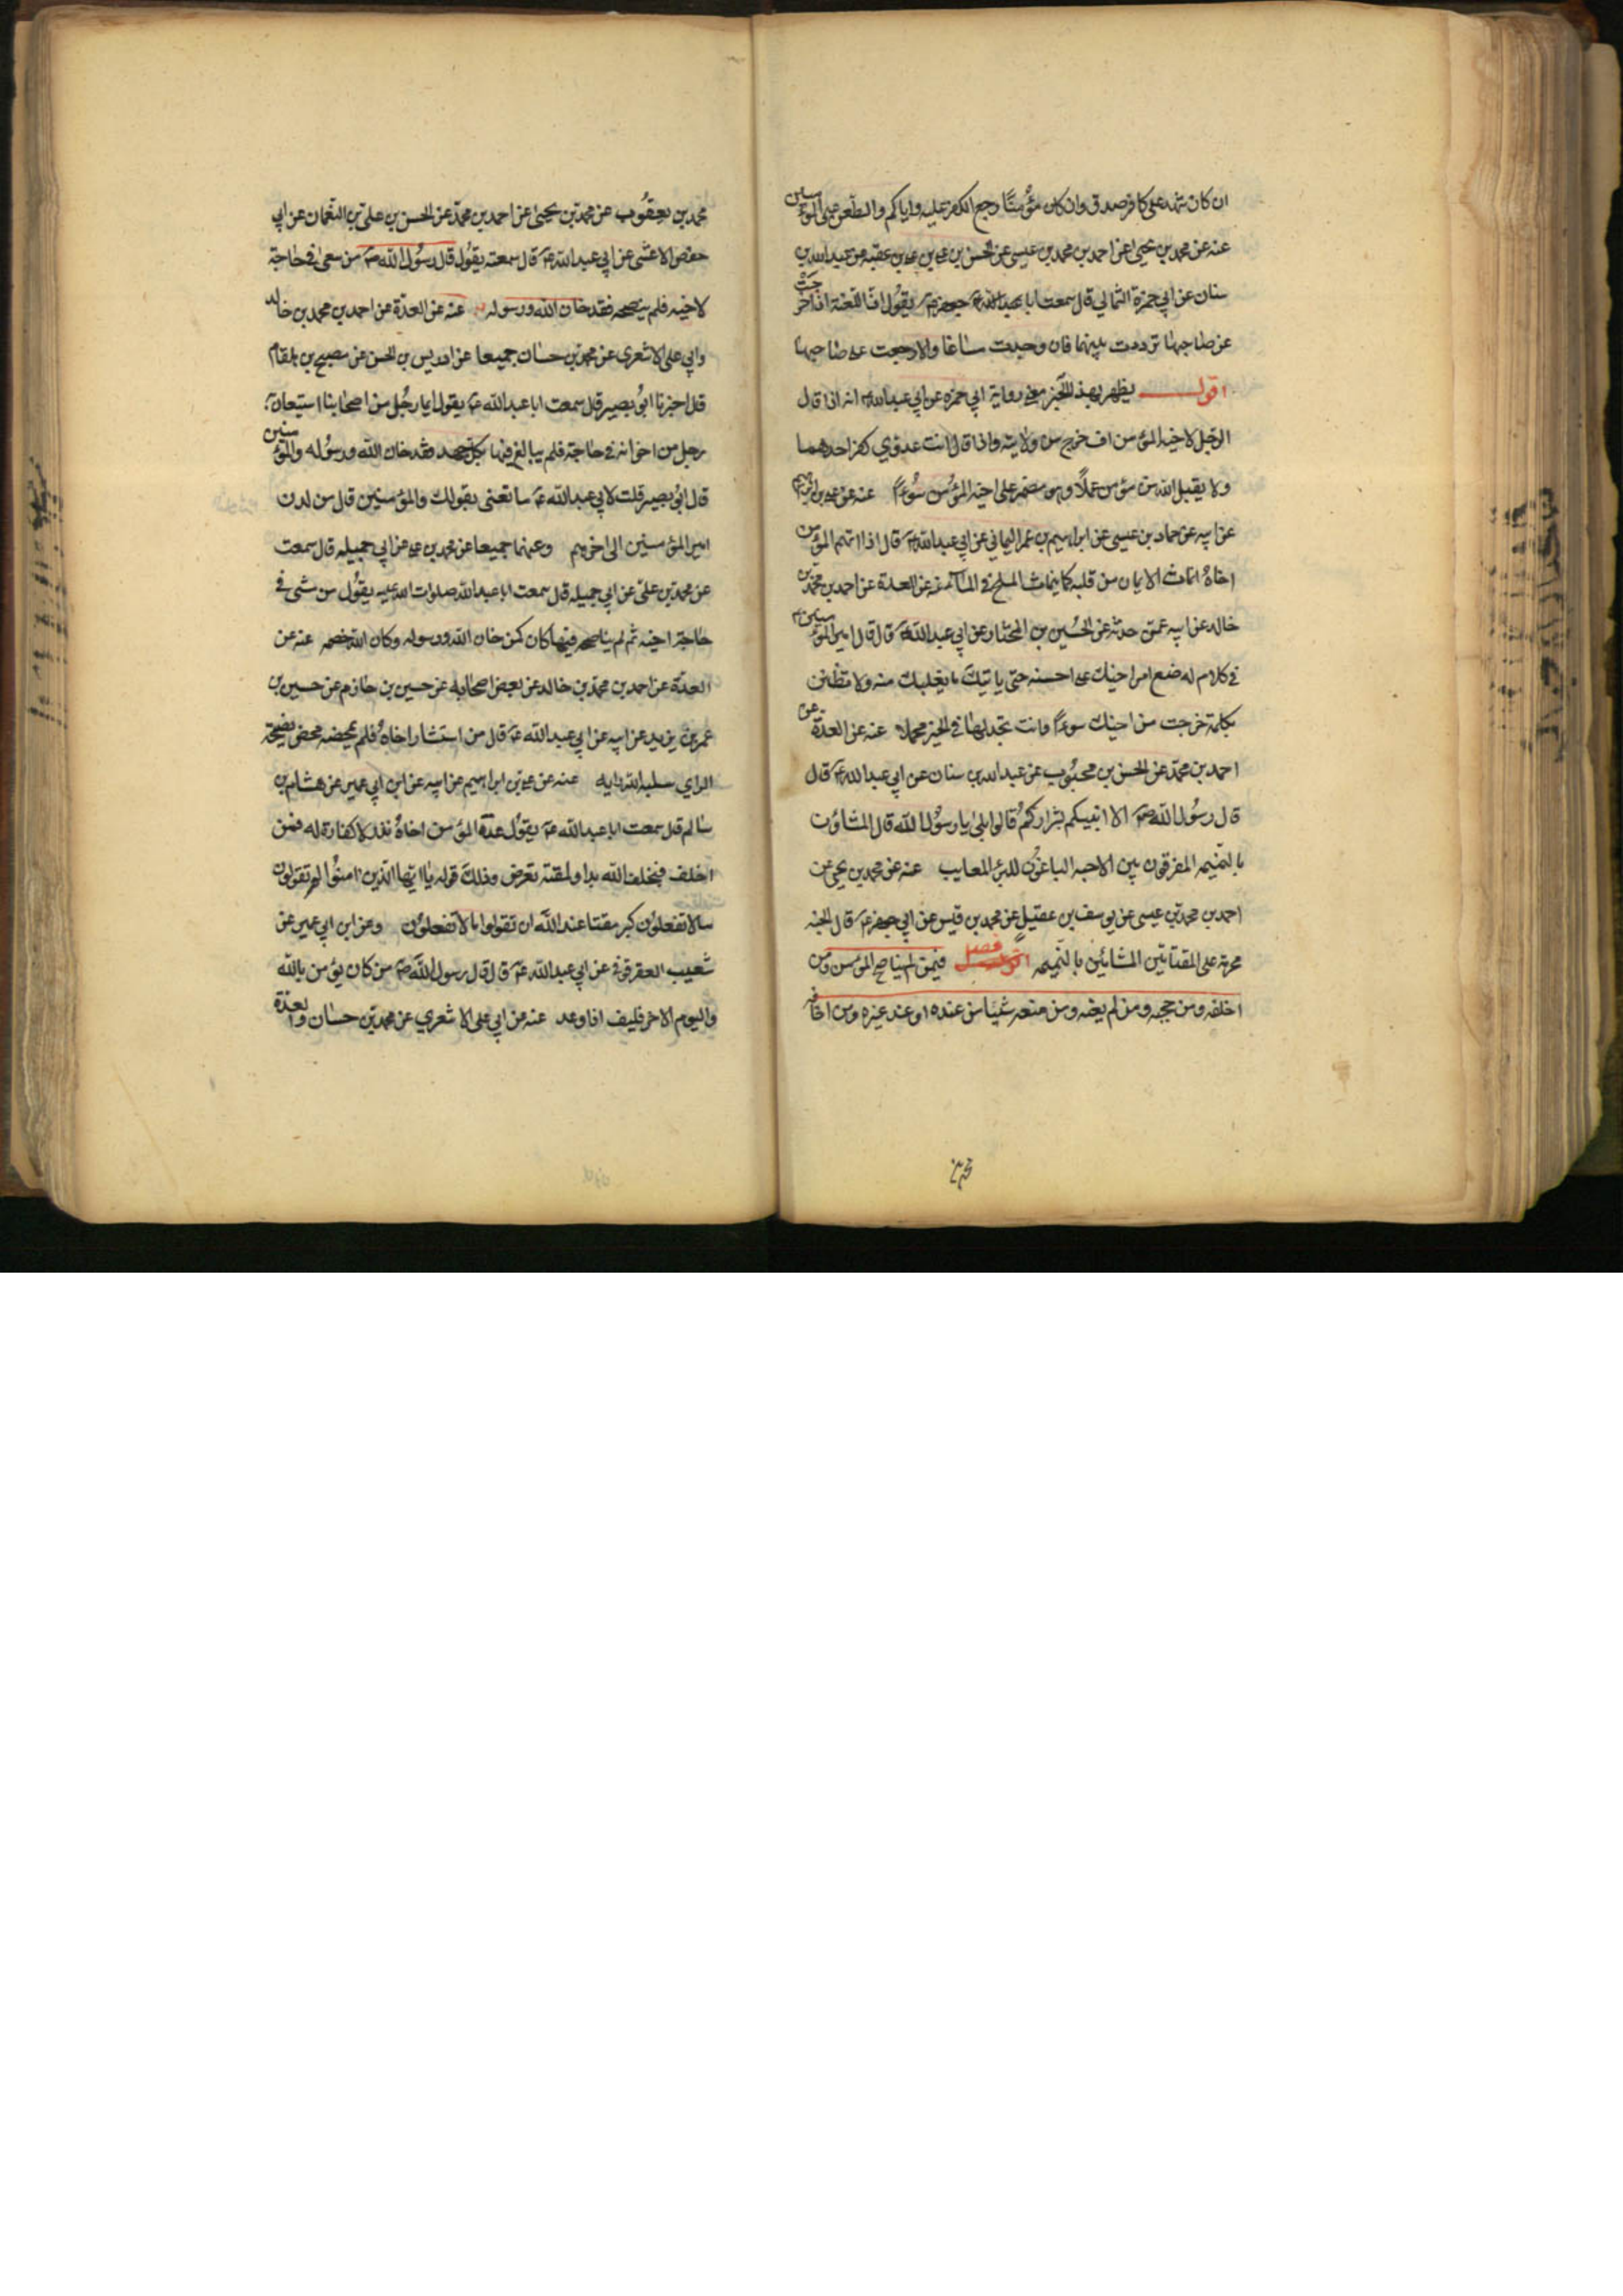 ان كان شهد على كافر صدق وان كان مؤمنًا رجع الكفر عليه واياكم والطعن على المؤمنين
عنه عن محمد بن يحيى عن احمد بن محمد بن عيسى عن الحسن بن علي بن علي بن عقبه عن عبد الله بن
سنان عن ابي حمزة الثمالي قال سمعت ابا جعفر ع يقول ان اللعنة اذا خرجت
عن صاحبها ترددت بينهما فان وجدت ساغا والا رجعت على صاحبها
اقول يظهر بهذا الخبر معنى رواية ابي حمزه عن ابي عبد الله ع انه اذا قال
الرجل لاخيه المؤمن اف خرج من ولايته واذا قال انت عدوي كفر احدهما
ولا يقبل الله من مؤمن عملًا وهو مضمر على اخيه المؤمن سوءً عنه عن علي بن ابرهيم
عن ابيه عن حماد بن عيسى عن ابراهيم بن عمر اليماني عن ابي عبد الله ع قال اذا اتهم المؤمن
اخاهُ انماث الايمان من قلبه كما ينماث الملح في الماء عنه عن العدة عن احمد بن محمد بن
خالد عن ابيه عمن حدثه عن الحسين بن المختار عن ابي عبد الله ع قال قال امير المؤمنين ع
في كلام له ضع امر اخيك على احسنه حتى ياتيك ما يغلبك منه ولا تظنن
بكلمة خرجت من اخيك سوءً وانت تجد لها في الخير محملا عنه عن العدة عن
احمد بن محمد عن الحسن بن محبوب عن عبد الله بن سنان عن ابي عبد الله ع قال
قال رسول الله ص الا انبيكم بشراركم قالوا بلى يا رسول الله قال المشاؤن
بالنميمه المفرقون بين الاحبه الباغون للبرئ المعايب عنه عن محمد بن يحيى عن
احمد بن محمد بن عيسى عن يوسف بن عقيل عن محمد بن قيس عن ابي جعفر ع قال الجنه
محرمة على القتاتين المشائين بالنميمه فصل فيمن لم يناصح المؤمن ومن
اخلفه ومن حجبه ومن لم يعنه ومن منعه شيئا من عنده او عند غيره ومن اخافه
محمد بن يعقوب عن محمد بن يحيى عن احمد بن محمد عن الحسن بن علي بن النعمان عن ابي
حفص الاعشى عن ابي عبد الله ع قال سمعته يقول قال رسول الله ص من سعى في حاجة
لاخيه فلم ينصحه فقد خان الله ورسوله عنه عن العدة عن احمد بن محمد بن خالد
وابي علي الاشعري عن محمد بن حسان جميعا عن ادريس بن الحسن عن مصبح بن هلقام
قال اخبرنا ابو بصير قال سمعت ابا عبد الله ع يقول ايما رجل من اصحابنا استعان به
رجل من اخوانه في حاجة فلم يبالغ فيها بكل جهد فقد خان الله ورسوله والمؤمنين
قال ابو بصير قلت لابي عبد الله ع ما تعنى بقولك والمؤمنين قال من لدن
امير المؤمنين الى اخرهم وعنهما جميعا عن محمد بن علي عن ابي جميله قال سمعت
عن محمد بن علي عن ابي جميله قال سمعت ابا عبد الله صلوات الله عليه يقول من مشى في
حاجة اخيه ثم لم يناصحه فيها كان كمن خان الله ورسوله وكان الله خصمه عنه عن
العدة عن احمد بن محمد بن خالد عن بعض اصحابه عن حسين بن حازم عن حسين بن
عمر بن يزيد عن ابيه عن ابي عبد الله ع قال من استشار اخاهُ فلم يمحضه محض نصيحة
الراي سلبه الله رايه عنه عن علي بن ابراهيم عن ابيه عن ابن ابي عمير عن هشام بن
سالم قال سمعت ابا عبد الله ع يقول عدة المؤمن اخاهُ نذر لا كفارة له فمن
اخلف فبخلف الله بدا ولمقته تعرض وذلك قوله يا ايها الذين امنوا لم تقولون
ما لا تفعلون كبر مقتا عند الله ان تقولوا ما لا تفعلون وعن ابن ابي عمير عن
شعيب العقرقوفي عن ابي عبد الله ع قال قال رسول الله ص من كان يؤمن بالله
واليوم الاخر فليف اذا وعد عنه عن ابي علي الاشعري عن محمد بن حسان والعدة